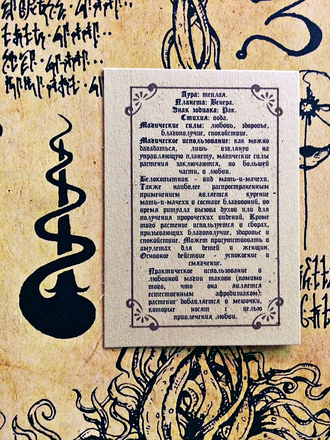 Аура: теплая.
Планета: Венера.
Знак зодиака: Рак.
Стихия: вода.
Магические силы: любовь, здоровье,
благополучие, спокойствие.
Магическое использование: как можно
догадаться, лишь взглянув на
управляющую планету, магические силы
растения заключаются, по большей
части, в любви.
Белокопытник - вид мать-и-мачехи.
Также наиболее распространенным
применением является курение
мать-и-мачехи в составе благовоний, во
время ритуала вызова духов или для
получения пророческих видений. Кроме
того растение используется в сборах,
призывающих благополучие, здоровье и
спокойствие. Может присутствовать в
амулетах для детей и женщин.
Основное действие - успокоение и
смягчение.
Практическое использование в
любовной магии таково (помимо
того, что она является
естественным афродизиаком):
растение добавляется в мешочки,
которые носят с целью
привлечения любви.